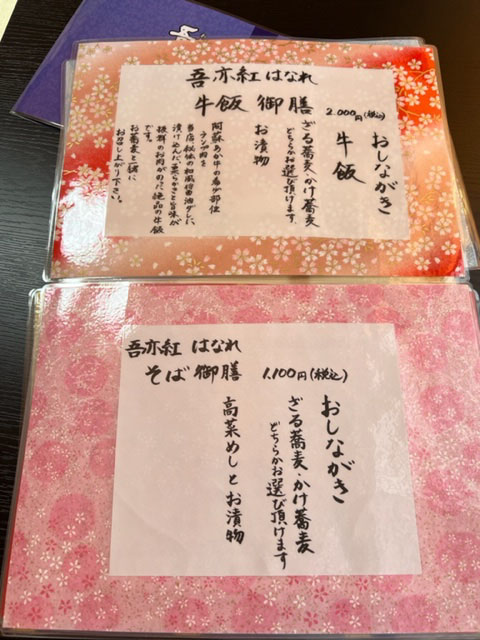 吾亦紅 はなれ
牛飯 御膳 2.000円(税込)
おしながき
牛飯
ざる蕎麦・かけ蕎麦
どちらかお選び頂けます
お漬物
阿蘇あか牛の希少部位
テンの肉を
当店秘伝の和風醤油ダレに
漬け込んだ柔らかさと旨味が
抜群のお肉がのった絶品の牛飯
です。
お蕎麦と一緒に
お召し上がり下さい。
吾亦紅 はなれ
そば 御膳 1.100円(税込)
おしながき
ざる蕎麦・かけ蕎麦
どちらかお選び頂けます
高菜めしとお漬物